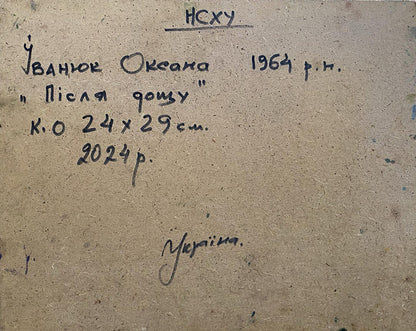 НСХУ
Іванюк Оксана 1964 р.н.
„Після дощу"
к.о 24х29см.
2024р.
Україна.